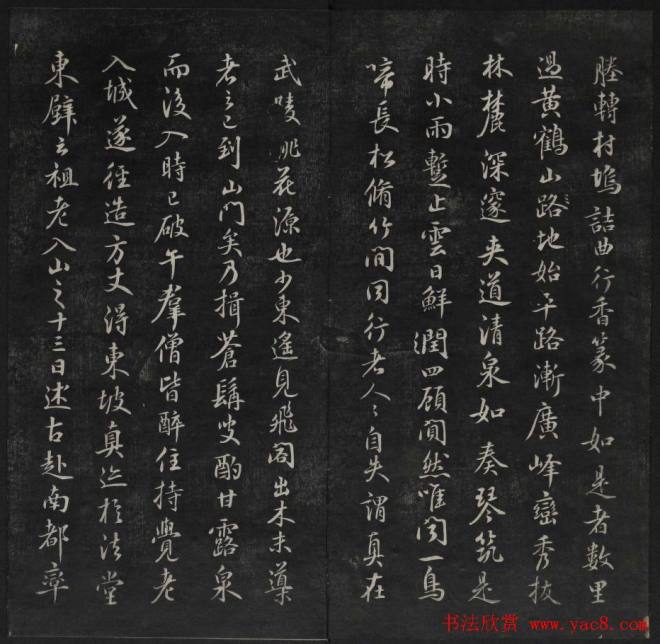 塍轉村塢詰曲行香篆中如是者数里
過黃鶴山路地始平路漸廣峰巒秀拔
林麓深邃夹道清泉如奏琴筑是
時小雨暫止雲日鮮潤四顧闃然唯聞一鳥
啼長松脩竹間同行老人〻自失謂真在
武陵桃花源也少東遙見飛閣出木末導
者云已到山門矣乃揖蒼髯叟酌甘露泉
而後入時已破午羣僧皆醉住持覺老
入城遂徑造方丈得東坡真迹於法堂
東壁云祖老入山之十三日述古赴南都率
书法欣赏 www.yac8.com